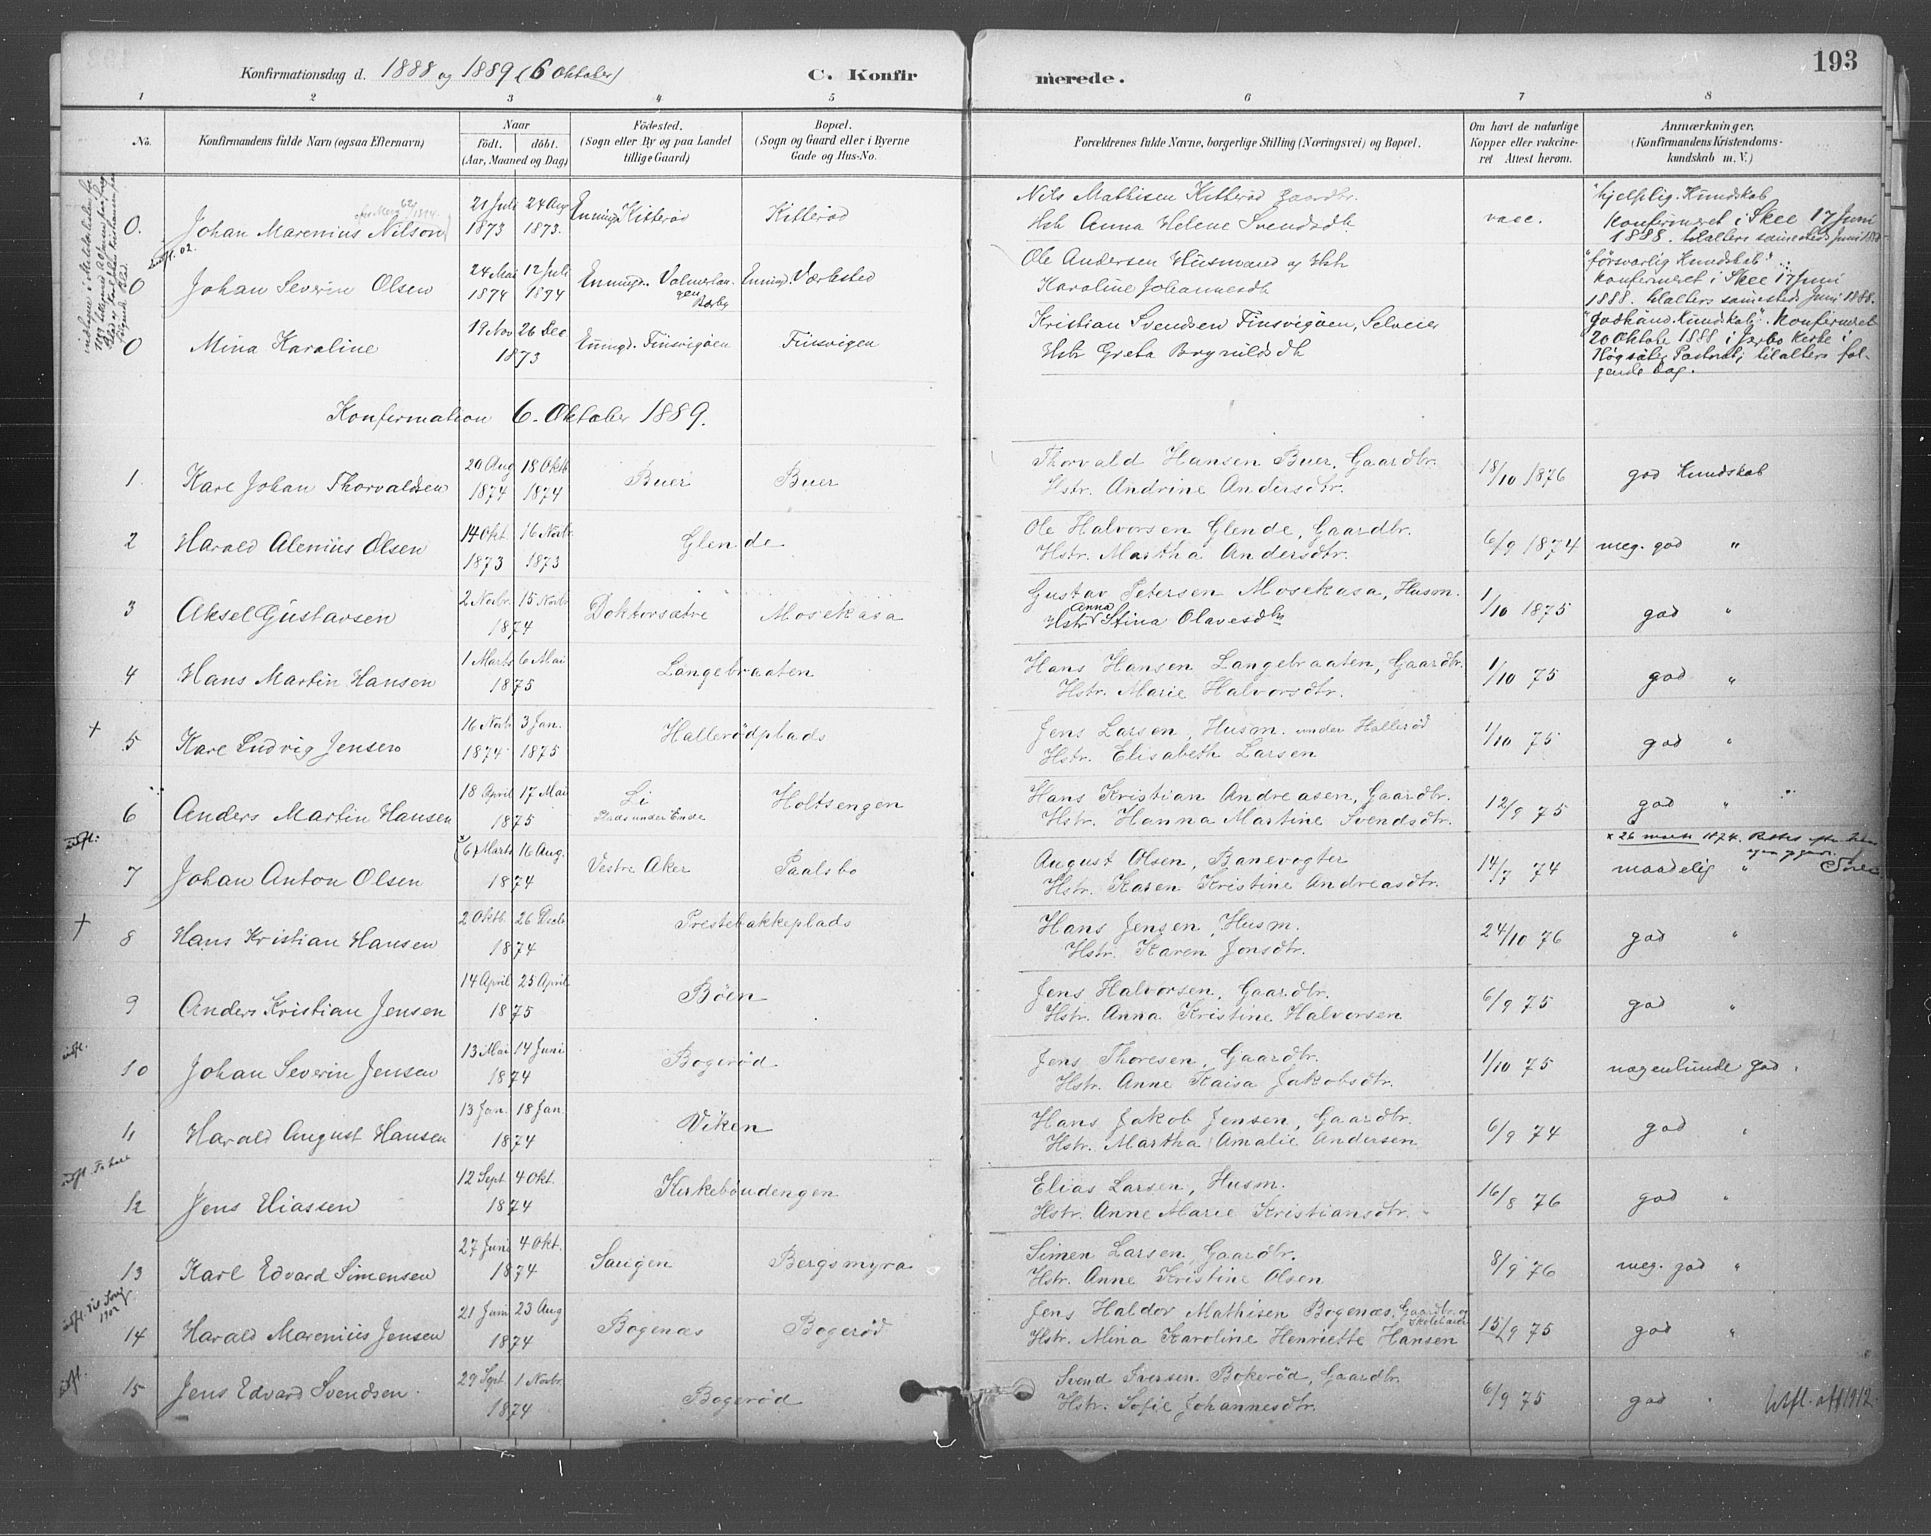 193
Konfirmationsdag d. 1888 og 1889 (6 Oktober)
C. Konfirmerede.
1 2 3 4 5 6 7 8
No.
Konfirmandens fulde Navn (ogsaa Efternavn)
Naar
født. døbt.
(Aar, Maaned og Dag)
Fødested.
(Sogn eller By og paa Landet
tillige Gaard)
Bopæl.
(Sogn og Gaard eller i Byerne
Gade og Hus-No.
Forældrenes fulde Navne, borgerlige Stilling (Næringsvei) og Bopæl.
Om havt de naturlige
Kopper eller vakcine-
ret Attest herom.
Anmærkninger.
(Konfirmandens Kristendoms-
kundskab m. V.)
0. Johan Marenius Nilson 21 Juli 1873 24 Aug 1873. Enningd. Kitterød Kitterød
Nils Mathisen Kitterød Gaardbr.
Hst Anna Helene Svendsdtr vacc.
"hjelplig Kundskab
Konfirmeret i Skee 17 Juni
1888. tilalters samesteds Juni 1888
0 Johan Severin Olsen 24 Mai 1874 12 Juli 1874 Enningd. Enningd. Værksted
Ole Andersen Husmand og Hst
Karoline Johannesdtr
"forsvarlig Kundskab"
konfirmeret i Skee 17 Juni
1888. tilalters samesteds Juni 1888.
0 Mina Karoline 19 Nov 26 Dec 1873 Enningd. Finsvigøen Finsvigen
Kristian Svendsen Finsvigøen, Selveier
Hstr Greta Brynildsdtr
"godkänd Kundskab". Konfirmeret
20 Oktober 1888 i Jerbo Kirke i
Högsäter Pastorat; tilalters føl-
gende Dag.
Konfirmation 6. Oktober 1889.
1 Karl Johan Thorvaldsen 20 Aug 1874 18 Oktb 1874 Buer Buer
Thorvald Hansen Buer, Gaardbr.
Hstr. Andrine Andersdtr. 18/10 1876 god Kundskab
2 Harald Alenius Olsen 14 Okt. 1873 16 Novbr. 1873 Glende
Ole Halvorsen Glende, Gaardbr.
Hstr. Martha Andersdtr. 6/9 1874 meg. god "
3 Aksel Gustavsen 2 Novbr. 15 Novbr 1874 Doktorsætre Mosekasa
Gustav Petersen Mosekasa, Husm.
Hstr Anna Stina Olavesdtr 1/10 1875 god "
4 Hans Martin Hansen 1 Marts 6 Mai 1875 Langebraaten
Hans Hansen Langebraaten, Gaardbr.
Hstr. Marie Halvorsdtr. 1/10 75 god "
+ 5 Karl Ludvig Jensen 16 Novb 1874 3 Jan. 1875 Hallerødplads
Jens Larsen, Husm. under Hallerød
Hstr. Elisabeth Larsen 1/10 75 god "
6 Anders Martin Hansen 18 April 17 Mai 1875 Li Plads under Ende Holtsengen
Hans Kristian Andreasen, Gaardbr.
Hstr. Hanna Martine Svendsdtr. 12/9 75 god "
x 26 marts 1874.
udfl. 7 Johan Anton Olsen x (6) Marts 16 Aug. 1874 Vestre Aker Paalsbo
August Olsen, Banevogter
Hstr. Karen Kristine Andreasdtr. 14/7 74 maadelig "
+ 8 Hans Kristian Hansen 2 Oktb. 26 Decb 1874 Prestebakkeplads
Hans Jensen, Husm.
Hstr. Karen Jonsdtr. 24/10 76 god "
9 Anders Kristian Jensen 14 April 25 April 1875 Böen
Jens Halvorsen, Gaardbr.
Hstr. Anna Kristine Halvorsen 6/9 75 god "
udfl. 10 Johan Severin Jensen 13 Mai 14 Juni 1874 Bogerød
Jens Thoresen, Gaardbr.
Hstr. Anne Kaisa Jakobsdtr. 1/10 75 nogenlunde god "
11 Harald August Hansen 13 Jan. 18 Jan. 1874 Viken
Hans Jakob Jensen, Gaardbr.
Hstr. Martha Amalie Andersen 6/9 74 god "
udfl. 12 Jens Eliassen 12 Sept. 4 Okt. 1874 Kirkebøndengen
Elias Larsen, Husm.
Hstr. Anne Marie Kristiansdtr. 16/8 76 god "
13 Karl Edvard Simensen 27 Juni 4 Okt. 1874 Saugen Bergsmyra
Simen Larsen, Gaardbr.
Hstr. Anne Kristine Olsen 8/9 76 meg. god "
udfl. 1902 14 Harald Marenius Jensen 21 Juni 23 Aug 1874 Bogenæs Bogerød
Jens Haldor Mathisen Bogenæs, Gaardbr. og
Hstr. Mina Karoline Henriette Hansen 15/9 75 god "
udfl. 15 Jens Edvard Svendsen. 29 Sept. 1 Novbr. 1874 Bogerød
Svend Iversen Bokerød, Gaardbr.
Hstr. Sofie Johannesdtr. 6/9 75 god " Utfl. att 1912.